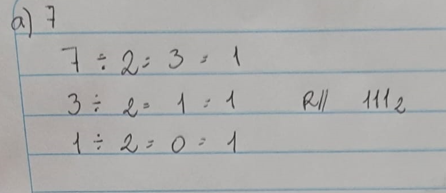 a) 7
7 ÷ 2 = 3 = 1
3 ÷ 2 = 1 = 1 R// 111₂
1 ÷ 2 = 0 = 1